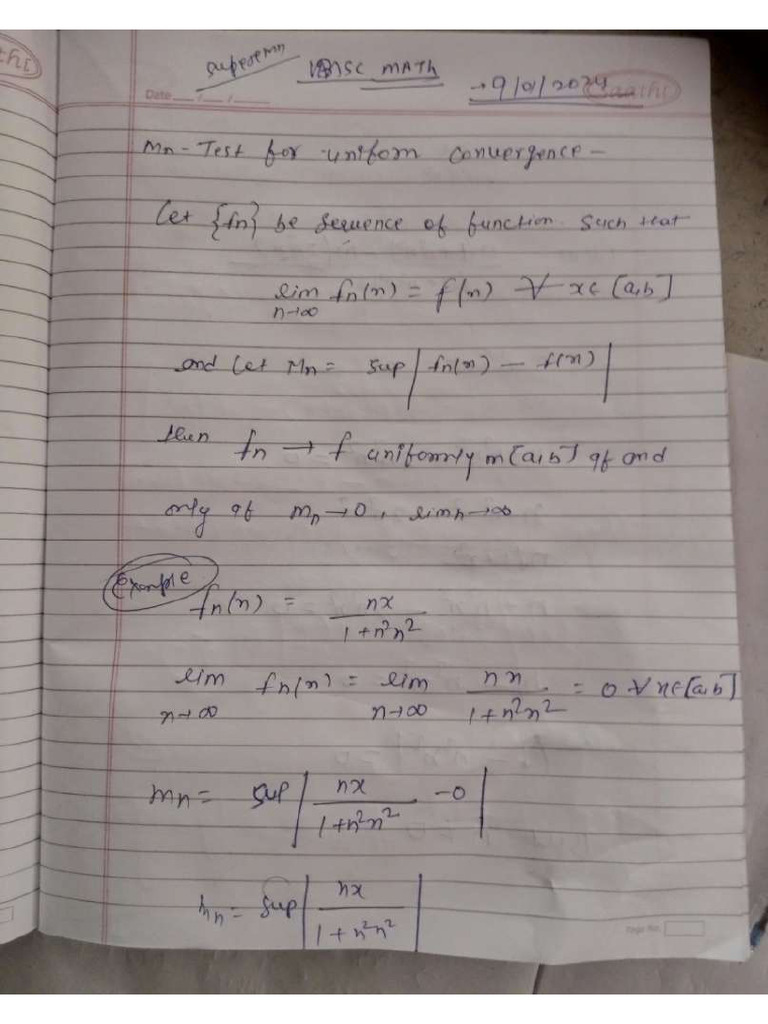 supremn
BSC MATH
→ 9/01/2024
Saathi
Date __/__/__
Mn - Test for uniform convergence -
Let {fn} be sequence of function such that
lim n→∞ fn(x) = f(x) ∀ x∈[a,b]
and let Mn = sup | fn(x) - f(x) |
then fn → f uniformly in [a,b] if and
only if Mn → 0, lim n→∞
Example
fn(x) = nx / 1+n²x²
lim n→∞ fn(x) = lim n→∞ nx / 1+n²x² = 0 ∀ x∈[a,b]
Mn = sup | nx / 1+n²x² - 0 |
Mn = sup | nx / 1+n²x² |
Page No.